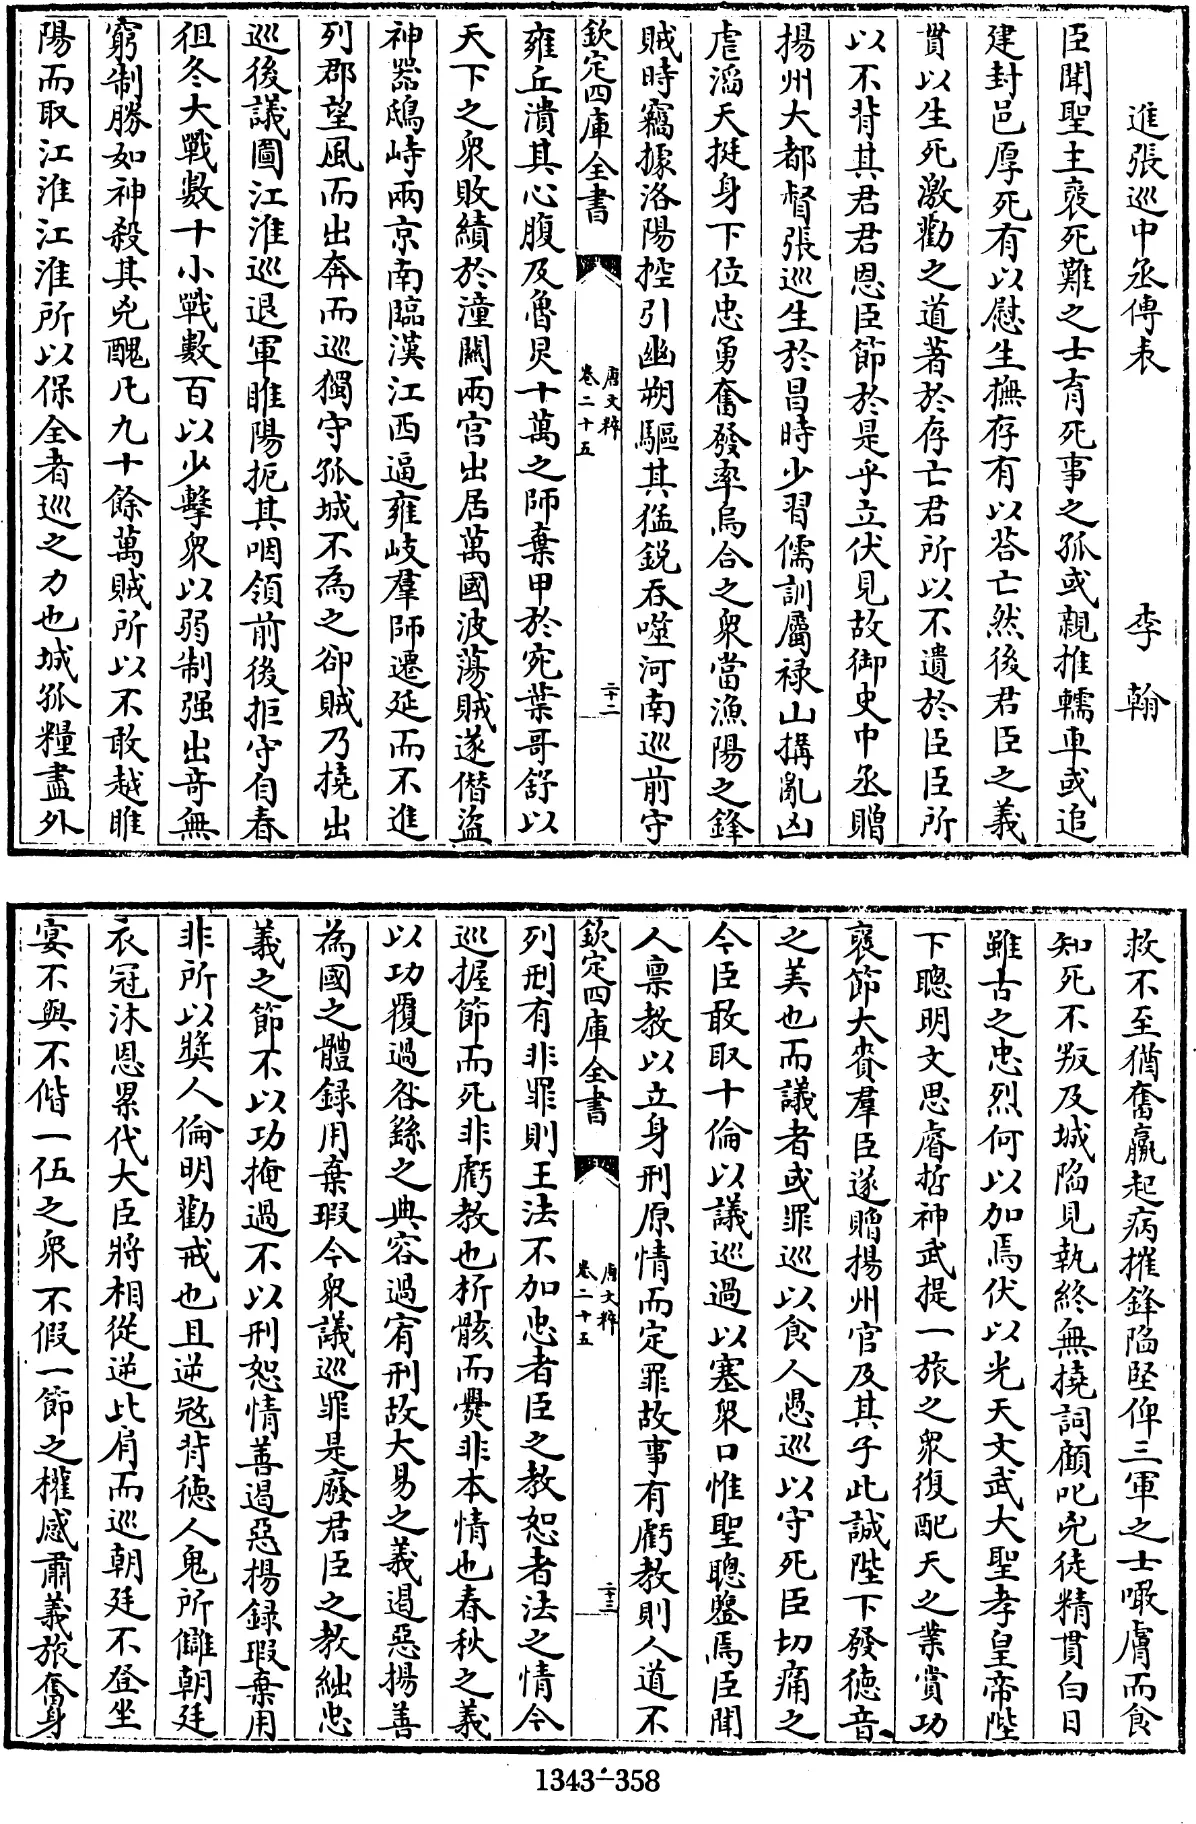 進張巡中丞傳表　李翰
臣聞聖主褒死難之士育死事之孤或親推轜車或追
建封邑厚死有以慰生撫存有以荅亡然後君臣之義
貫以生死激勸之道著於存亡君所以不遺於臣臣所
以不背其君君恩臣節於是乎立伏見故御史中丞贈
揚州大都督張巡生於昌時少習儒訓屬禄山搆亂凶
虐滔天挺身下位忠勇奮發率烏合之衆當漁陽之鋒
賊時竊據洛陽控引幽朔驅其猛鋭吞噬河南巡前守
欽定四庫全書
唐文粹
卷二十五
二十二
雍丘潰其心腹及魯炅十萬之師棄甲於宛葉哥舒以
天下之衆敗績於潼關兩宫出居萬國波蕩賊遂僭盜
神器鴟峙兩京南臨漢江西逼雍岐羣師遷延而不進
列郡望風而出奔而巡獨守孤城不為之卻賊乃撓出
巡後議圖江淮巡退軍睢陽扼其咽領前後拒守自春
徂冬大戰數十小戰數百以少擊衆以弱制强出奇無
窮制勝如神殺其兇醜凡九十餘萬賊所以不敢越睢
陽而取江淮江淮所以保全者巡之力也城孤糧盡外
救不至猶奮羸起病摧鋒陷堅俾三軍之士噉膚而食
知死不叛及城陷見執終無撓詞顧叱兇徒精貫白日
雖古之忠烈何以加焉伏以光天文武大聖孝皇帝陛
下聰明文思睿哲神武提一旅之衆復配天之業賞功
褒節大賚羣臣遂贈揚州官及其子此誠陛下發德音
之美也而議者或罪巡以食人愚巡以守死臣切痛之
今臣敢取十倫以議巡過以塞衆口惟聖聰鑒焉臣聞
人禀教以立身刑原情而定罪故事有虧教則人道不
欽定四庫全書
唐文粹
卷二十五
二十三
列刑有非罪則王法不加忠者臣之教恕者法之情今
巡握節而死非虧教也析骸而爨非本情也春秋之義
以功覆過咎繇之典容過宥刑故大易之義遏惡揚善
為國之體録用棄瑕今衆議巡罪是廢君臣之教絀忠
義之節不以功掩過不以刑恕情善遏惡揚録瑕棄用
非所以奬人倫明勸戒也且逆冦背德人鬼所讎朝廷
衣冠沐恩累代大臣將相從逆比肩而巡朝廷不登坐
宴不與不偕一伍之衆不假一節之權感肅義旅奮身
1343-358